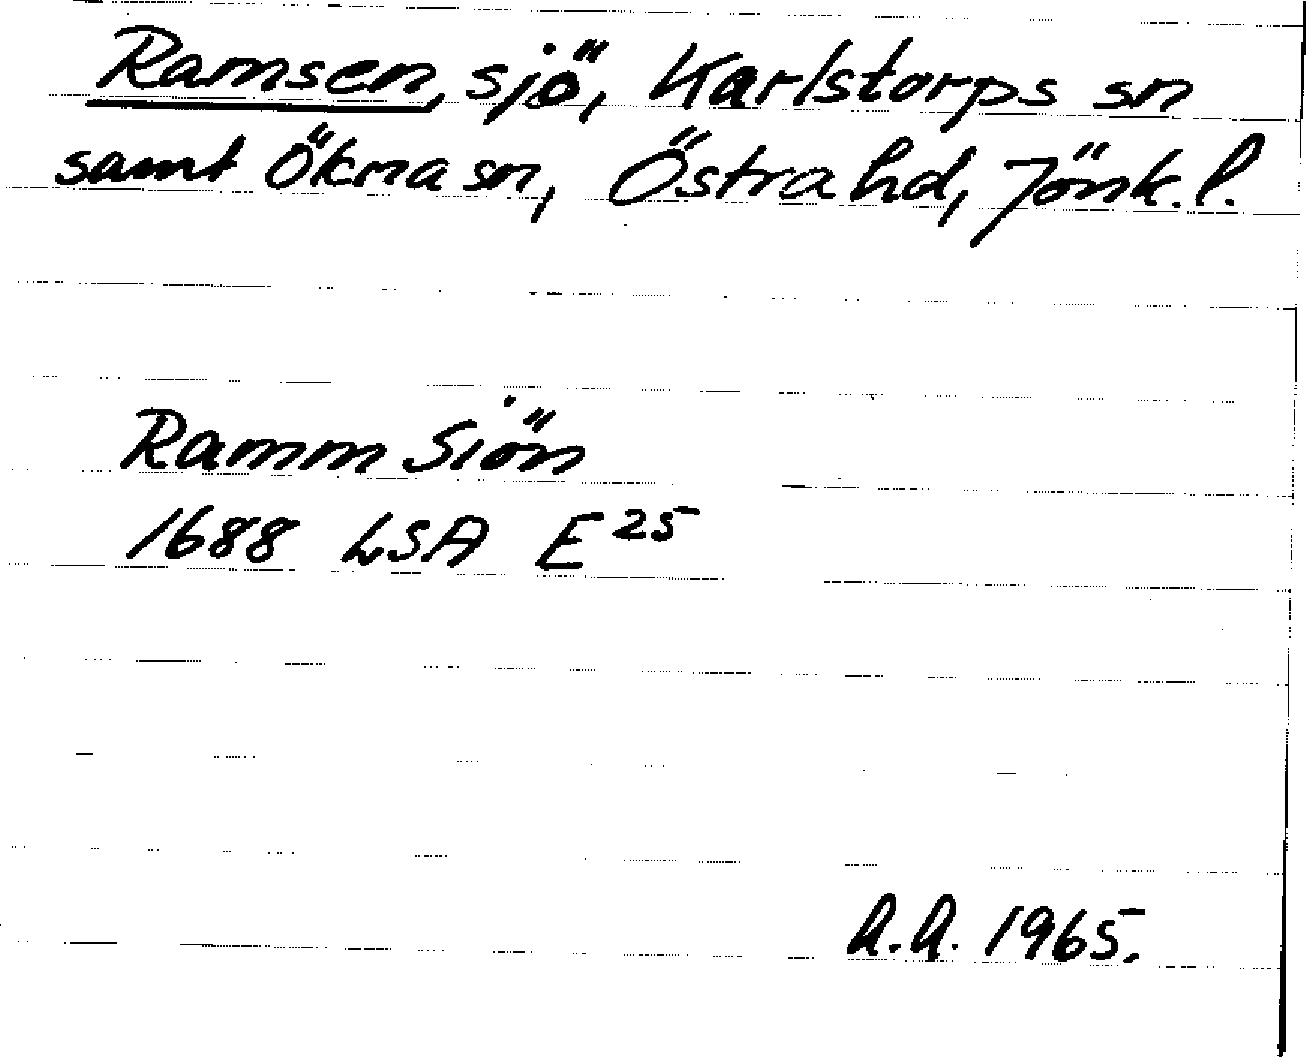 Ramsen, sjö, Karlstorps sn
samt Ökna sn, Östra hd, Jönk. l.
Ramm Siön
1688 LSA E 25
A.A. 1965.